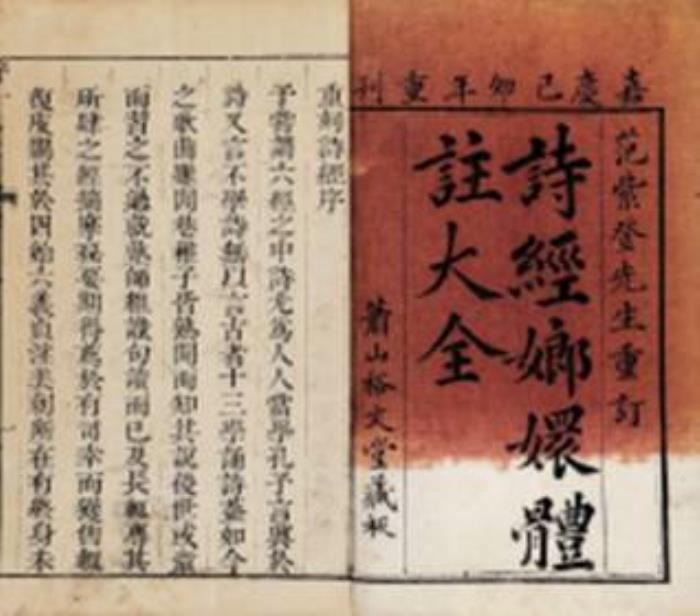 嘉慶己卯年重刊
范紫登先生重訂
詩經嫏嬛體
註大全
蕭山裕文堂藏板
重刻詩經序
予嘗謂六經之中詩尤爲人人當學孔子言興於
詩又言不學詩無以言古者十三學誦詩蓋如今
之歌曲雖閭巷稚子皆熟聞而知其說後世或童
而習之不過就塾師粗識句讀而已及長輒專其
所肄之經揣摩秘要期得於有司幸而獲售輒
復庋閣其於四始六義貞淫美刺所在有終身未